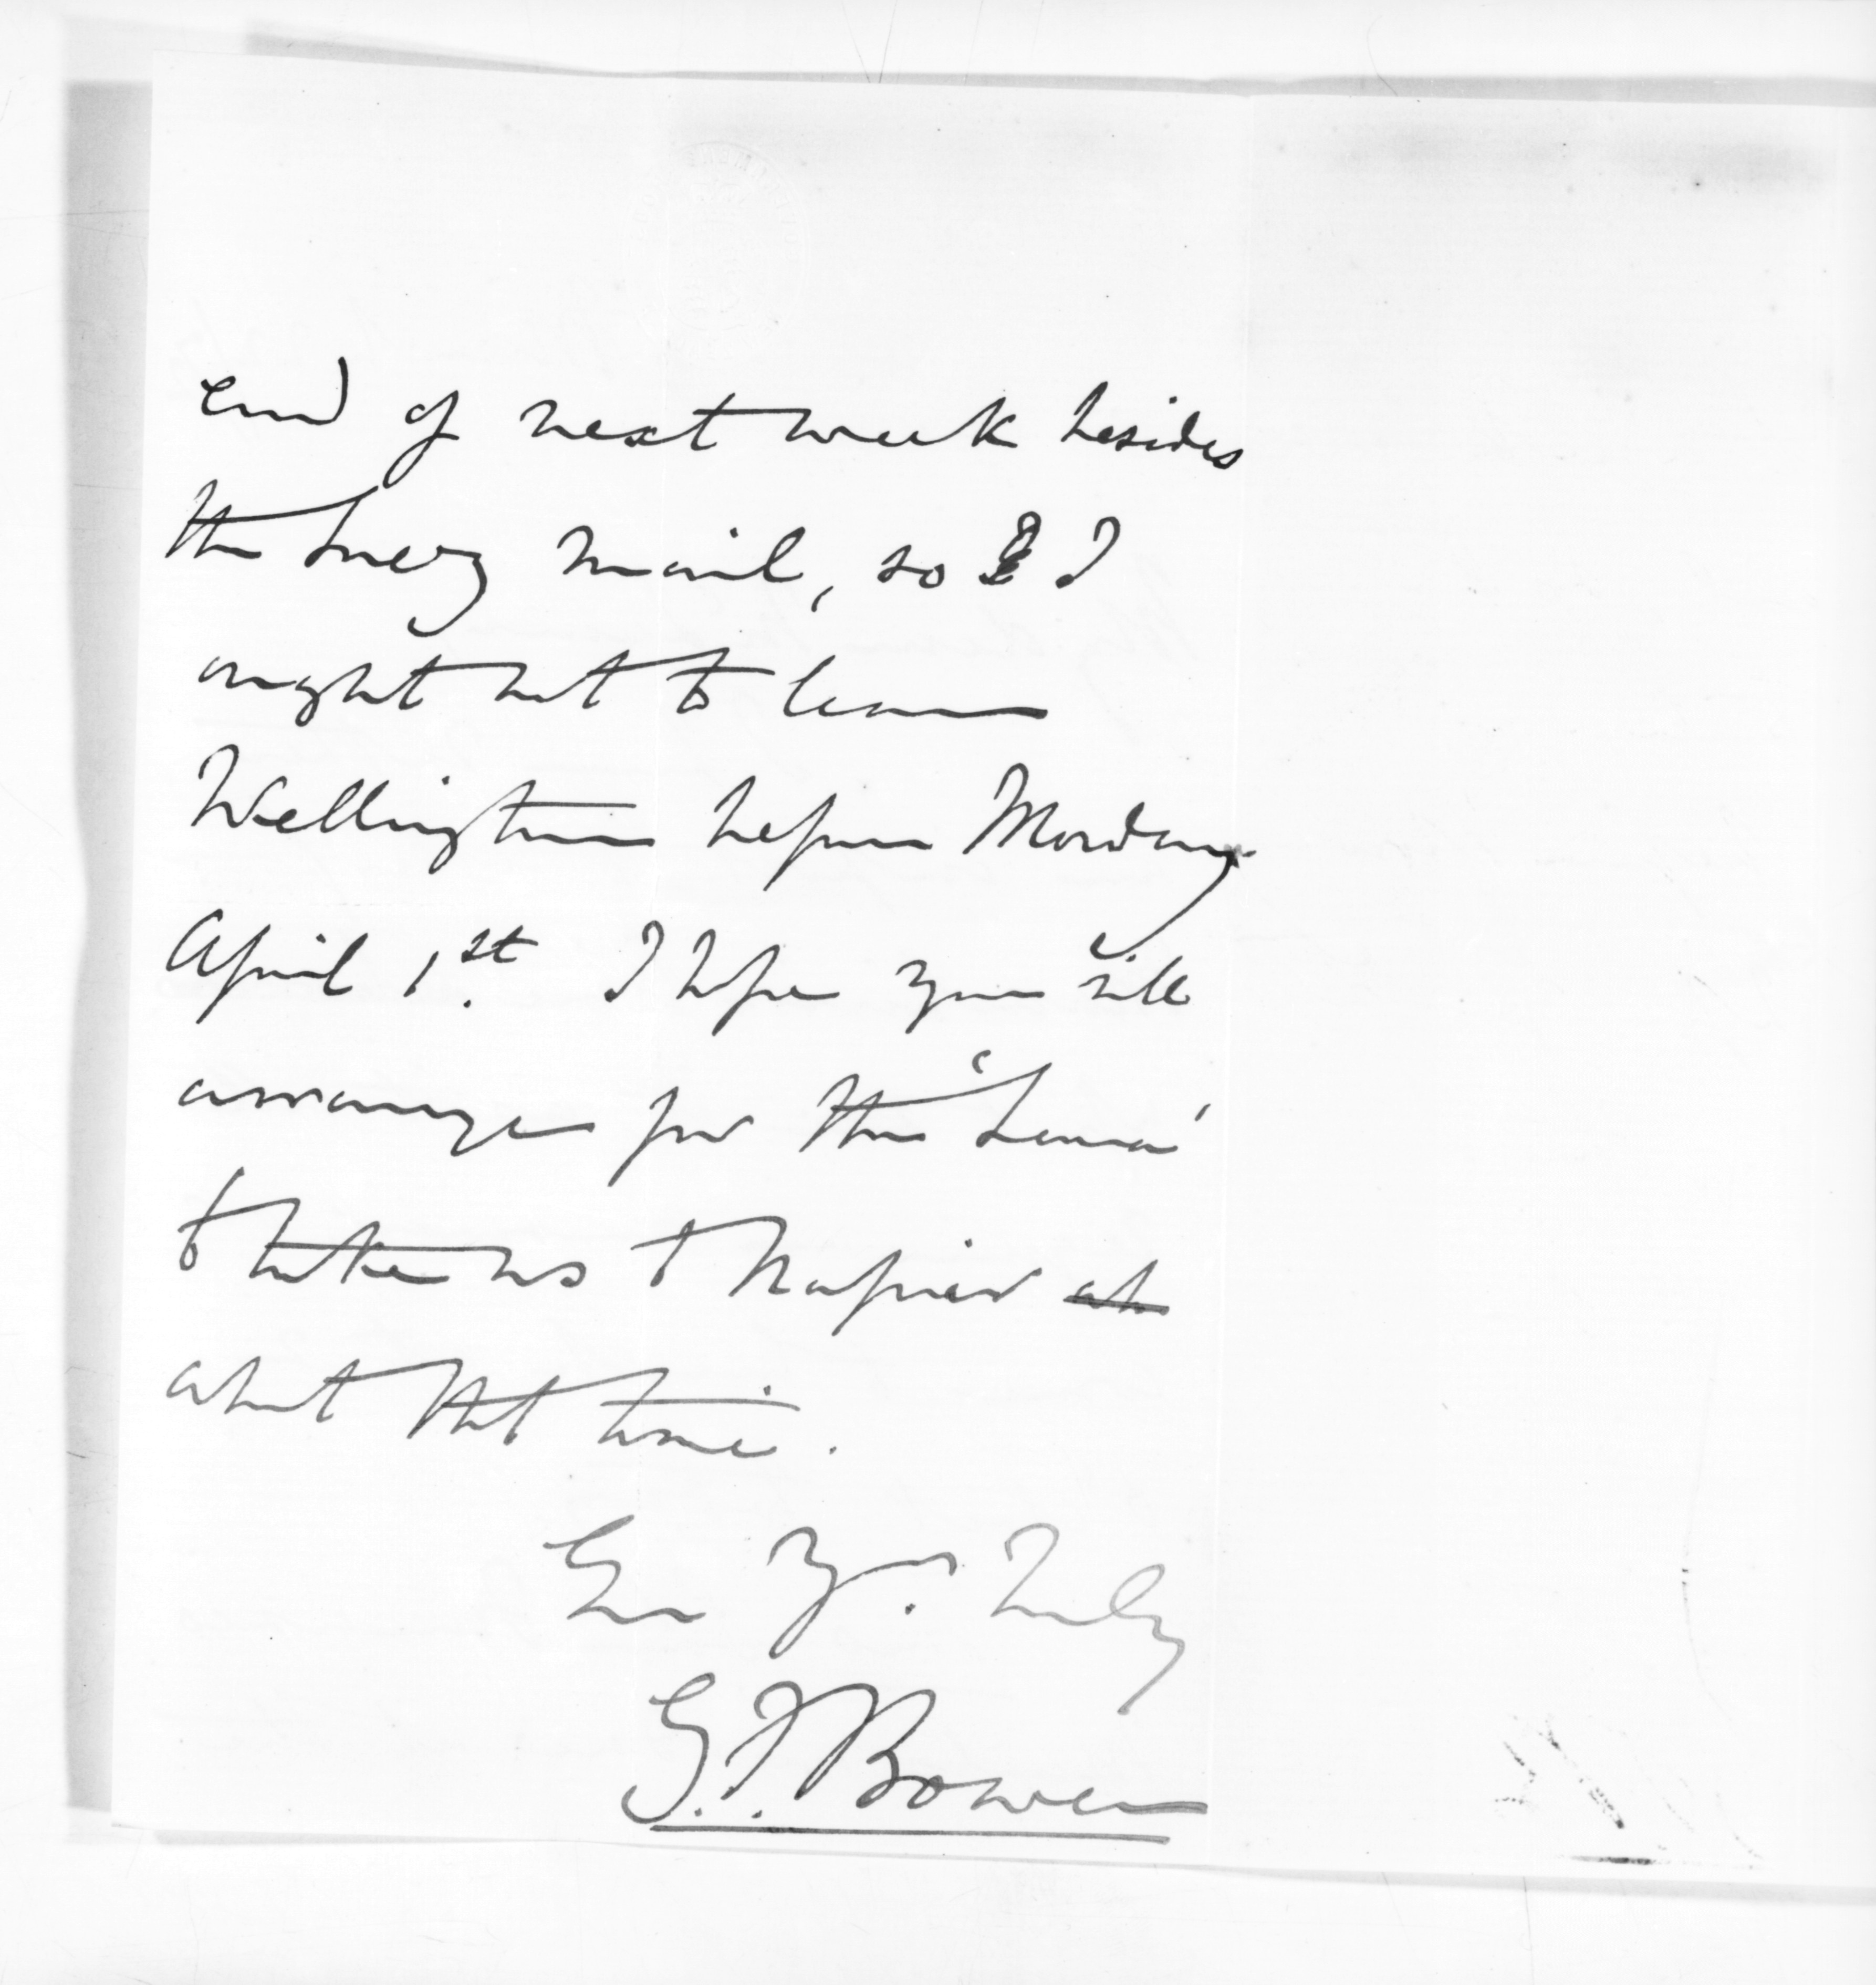 end of next week besides
the Suez mail, so I
ought not to leave
Wellington before Monday
April 1st. I hope you will
arrange for the "Luna'
to take us to Napier at
about that time.
Ever Yrs. truly
G.F. Bowen